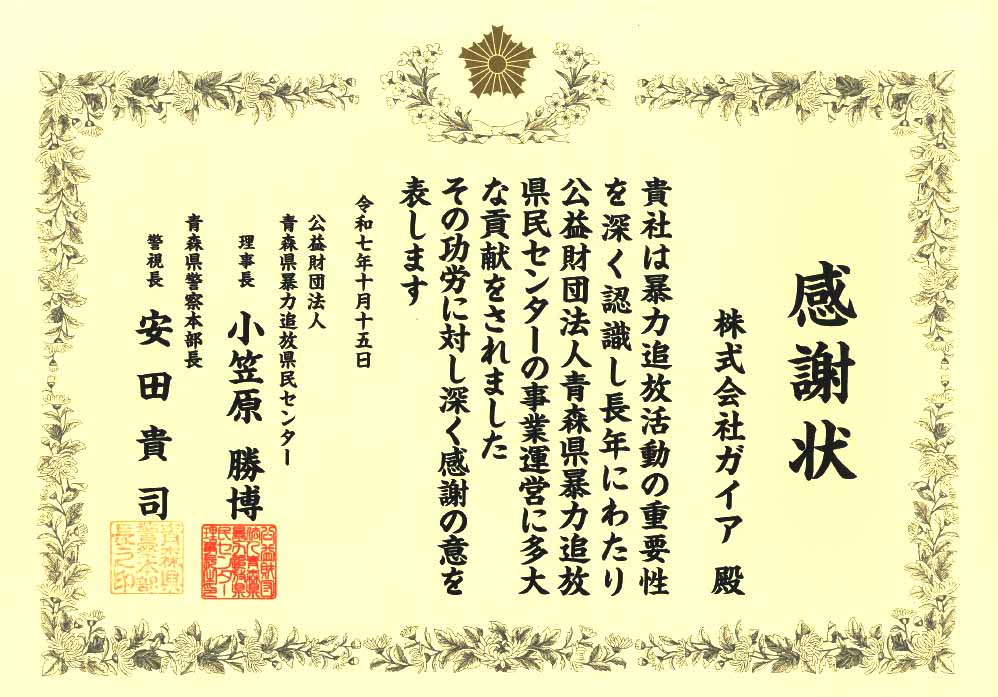 感謝状
株式会社ガイア 殿
貴社は暴力追放活動の重要性
を深く認識し長年にわたり
公益財団法人青森県暴力追放
県民センターの事業運営に多大
な貢献をされました
その功労に対し深く感謝の意を
表します
令和七年十月十五日
公益財団法人
青森県暴力追放県民センター
理事長 小笠原 勝博
青森県警察本部長
警視長 安田貴司
青森県
警察本部
長之印